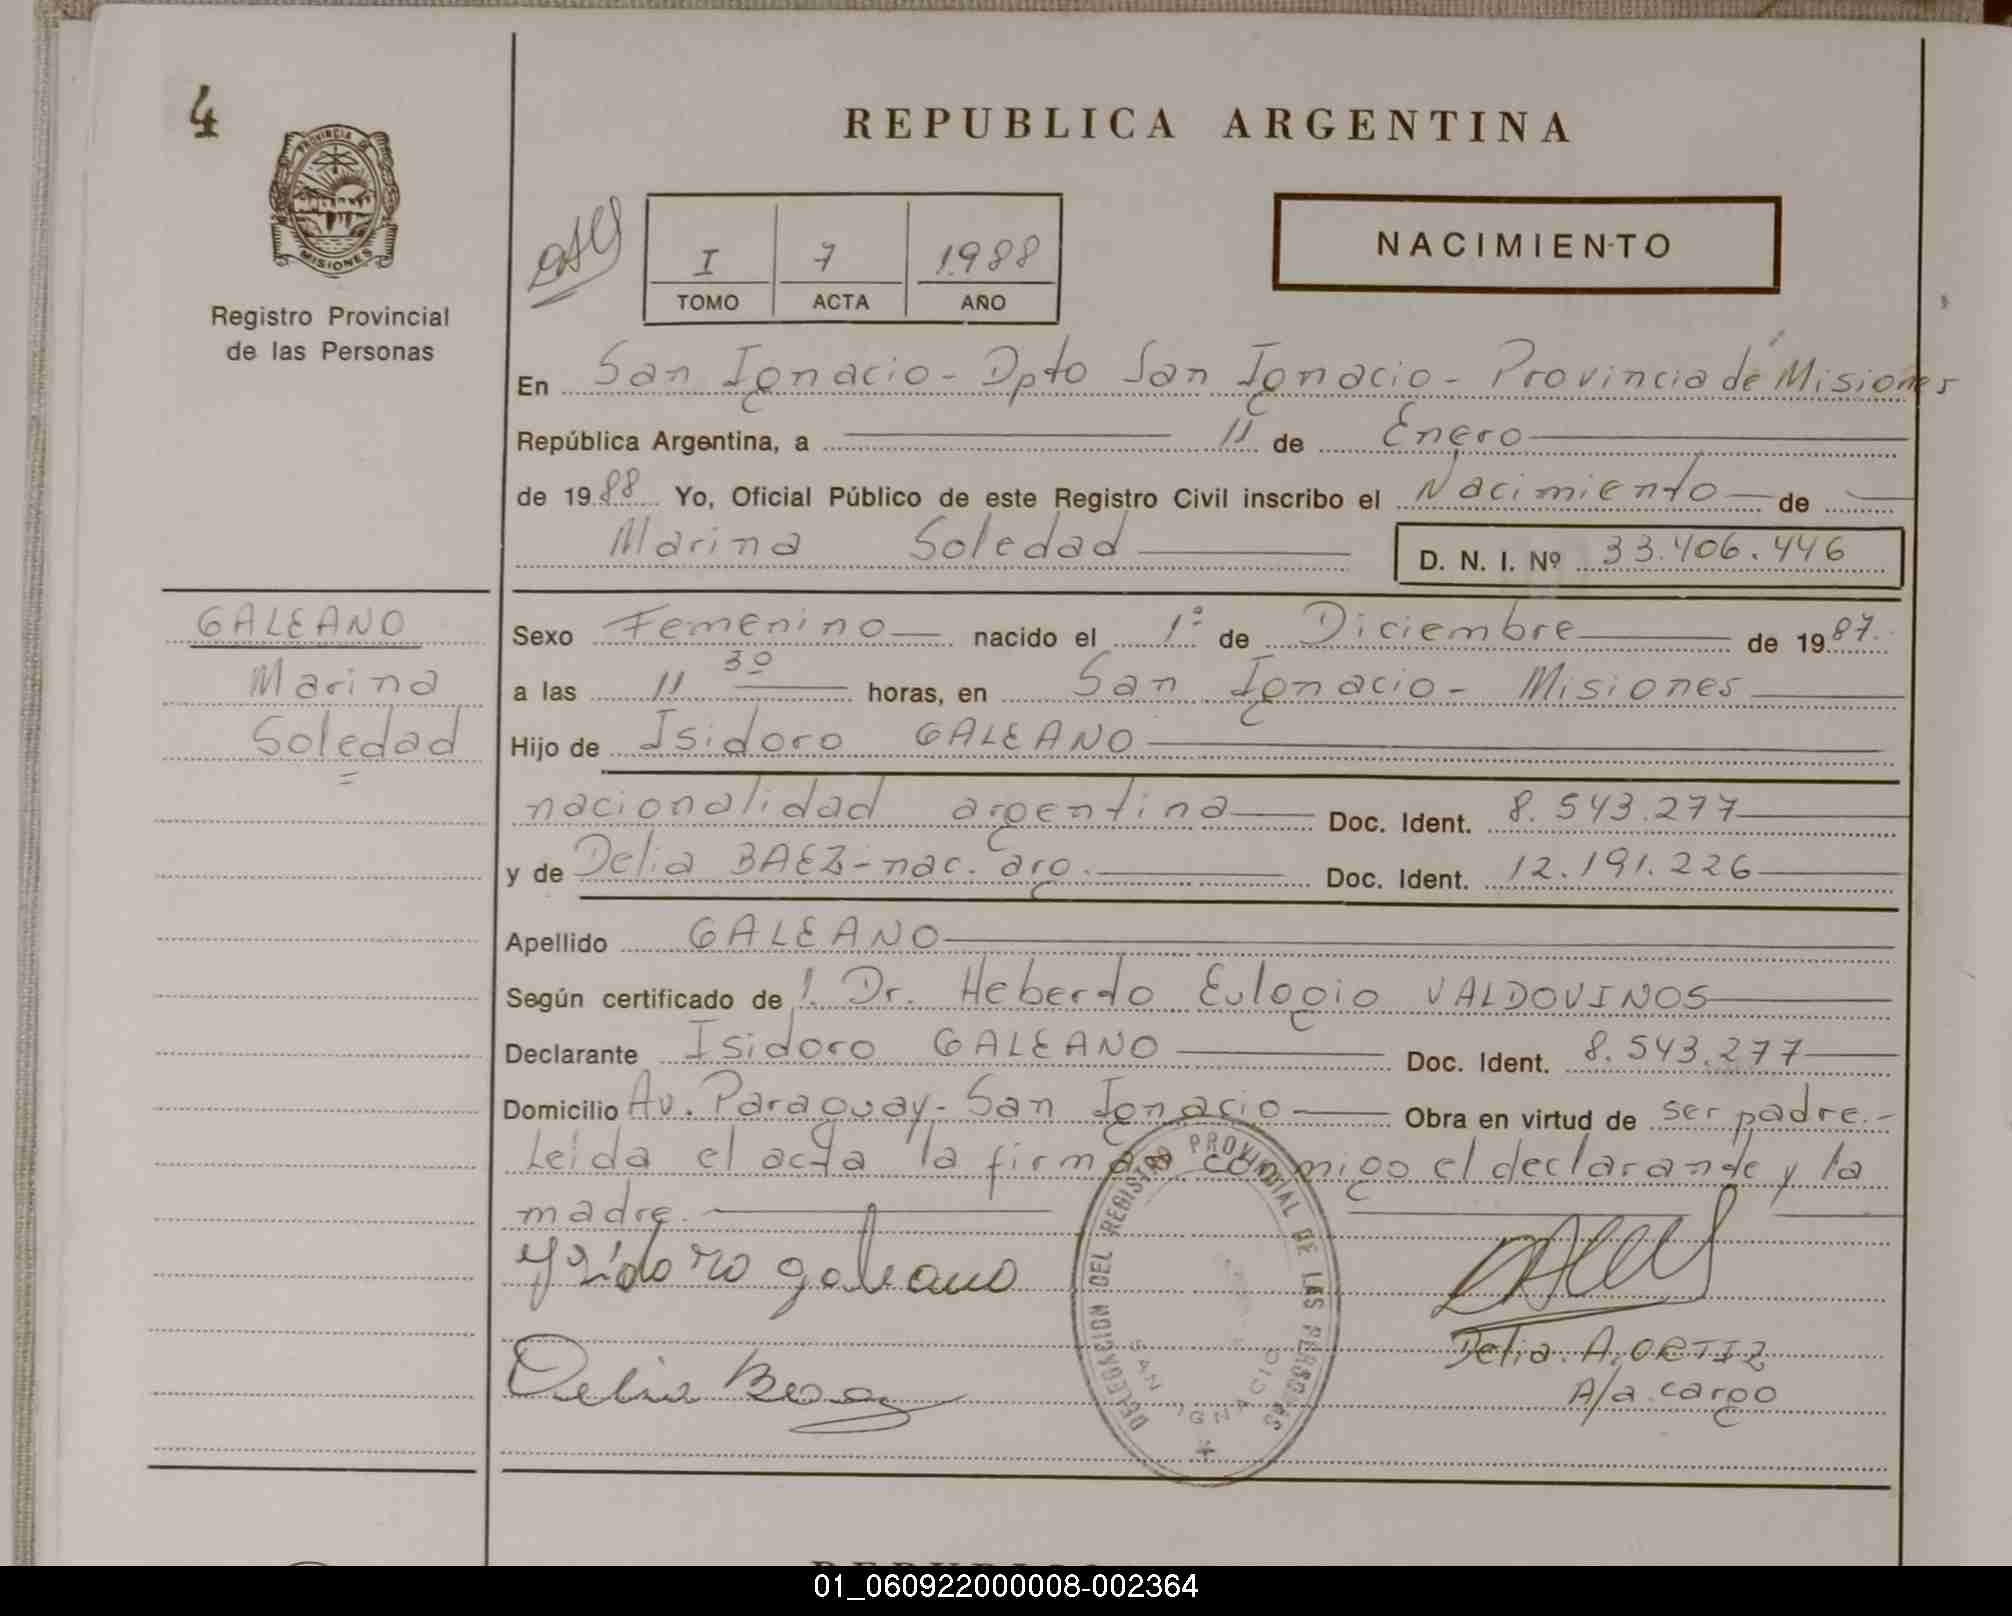 4
REPUBLICA ARGENTINA
PROVINCIA DE
MISIONES
Registro Provincial
de las Personas
I 7 1988
TOMO ACTA AÑO
NACIMIENTO
En San Ignacio - Dpto San Ignacio - Provincia de Misiones
República Argentina, a 11 de Enero
de 1988 Yo, Oficial Público de este Registro Civil inscribo el Nacimiento de
Marina Soledad D. N. I. Nº 33.406.446
GALEANO
Marina
Soledad
Sexo Femenino nacido el 1º de Diciembre de 1987.
a las 11 30 horas, en San Ignacio - Misiones
Hijo de Isidoro GALEANO
nacionalidad argentina Doc. Ident. 8.543.277
y de Delia BAEZ - nac. arg. Doc. Ident. 12.191.226
Apellido GALEANO
Según certificado de 1. Dr. Heberto Eulogio VALDOVINOS
Declarante Isidoro GALEANO Doc. Ident. 8.543.277
Domicilio Av. Paraguay - San Ignacio Obra en virtud de ser padre.-
Leída el acta la firman conmigo el declarante y la
madre.
Ysidoro galeano
Delia Baez
DELEGACION DEL REGISTRO PROVINCIAL DE LAS PERSONAS
SAN IGNACIO
Delia. A. ORTIZ
A/a. cargo
01_060922000008-002364